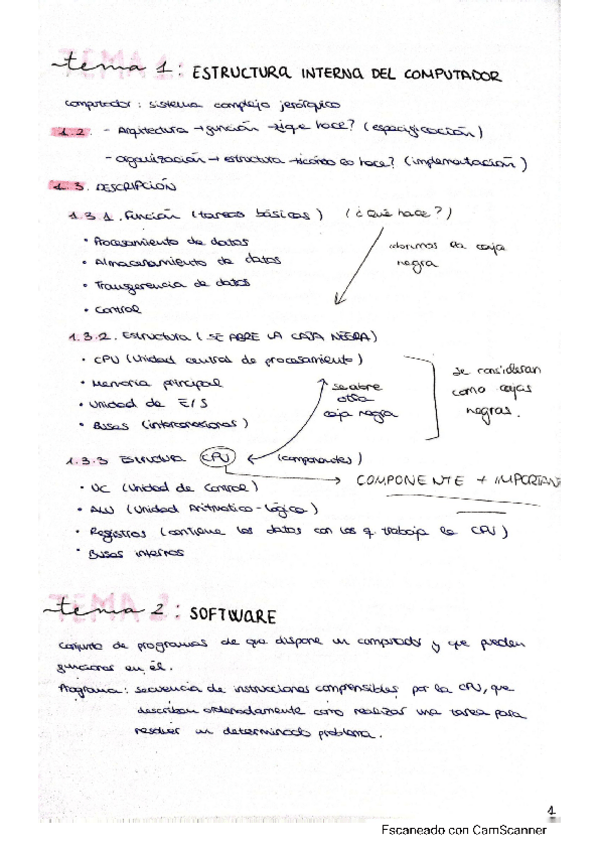 tema 1: ESTRUCTURA INTERNA DEL COMPUTADOR
computador: sistema complejo jerárquico
1.2. - Arquitectura → función → ¿qué hace? (especificación)
- organización → estructura → ¿cómo lo hace? (implementación)
1.3. DESCRIPCIÓN
1.3.1. Función (tareas básicas) (¿Qué hace?)
• Procesamiento de datos
• Almacenamiento de datos
• Transferencia de datos
• Control
caja
negra
1.3.2. Estructura (SE ABRE LA CAJA NEGRA)
• CPU (Unidad central de procesamiento)
• Memoria principal
• Unidad de E/S
• Buses (interconexiones)
se abre
otra
caja negra
se consideran
como cajas
negras.
1.3.3 Estructura CPU (componentes)
COMPONENTE + IMPORTAN
• UC (Unidad de Control)
• ALU (Unidad Aritmético-lógica)
• Registros (contiene los datos con los q trabaja la CPU)
• Buses internos
tema 2: SOFTWARE
Conjunto de programas de que dispone un computador y que pueden
funcionar en él.
Programa: secuencia de instrucciones comprensibles por la CPU, que
describan ordenadamente como realizar una tarea para
resolver un determinado problema.
1
Escaneado con CamScanner